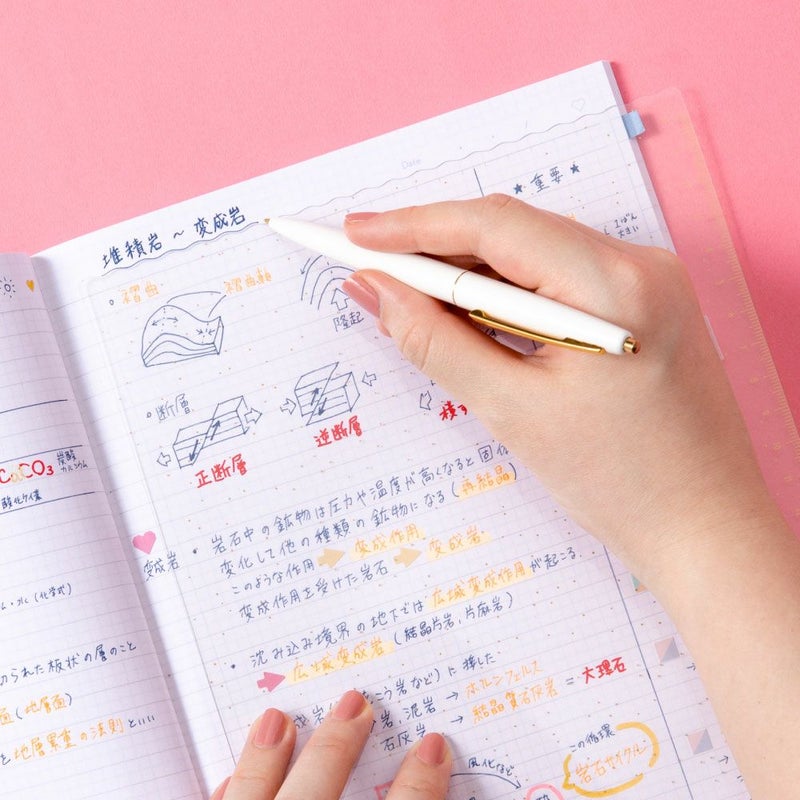 Date
堆積岩 ~ 変成岩
★ 重要 ★
1ばん
大きい
褶曲
褶曲軸
隆起
断層
正断層
逆断層
横ず
岩石中の鉱物は圧力や温度が高くなると固体
変化して他の種類の鉱物になる(再結晶)
このような作用 → 変成作用
変成作用を受けた岩石 → 変成岩
変成岩
沈み込み境界の地下では広域変成作用が起こる.
→ 広域変成岩 (結晶片岩, 片麻岩)
こう岩など)に接した
岩, 泥岩 → ホルンフェルス
石灰岩 → 結晶質石灰岩 = 大理石
風化など
この循環
岩石サイクル
CaCO3 炭酸
カルシウム
酸化ケイ素
(化学式)
切られた板状の層のこと
面(地層面)
を地層累重の法則といい